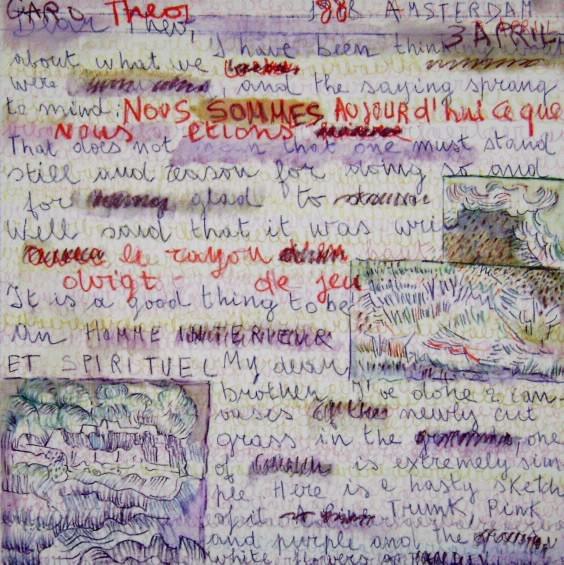 CARO Theo, AMSTERDAM
Dear Theo, 3 APRIL
I have been thin
about what we
were , and the saying sprang
to mind: NOUS SOMMES AUJOURd'hui ce que
NOUS etions
That does not mean that one must stand
still and reason for doing so and
for glad to
Well said that it was wri
le rayon
doigt de feu
It is a good thing to be
an HOMME INTERIEUR
ET SPIRITUEL My dear
brother, I've done 2 can-
vases of the newly cut
grass in the , one
of is extremely sim
ple. Here is a hasty sketch
of it TRUNK, PINK
and purple and the
white flowers